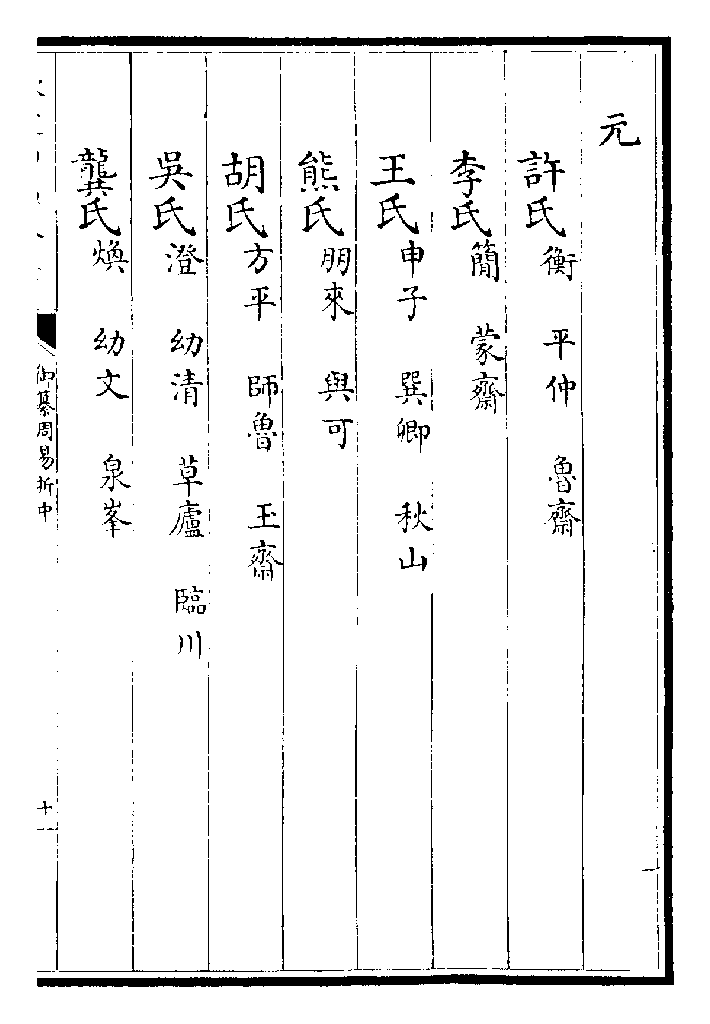 元
許氏衡 平仲 魯齋
李氏簡 蒙齋
王氏申子 巽卿 秋山
熊氏朋來 與可
胡氏方平 師魯 玉齋
吳氏澄 幼清 草廬 臨川
龔氏煥 幼文 泉峯
御纂周易折中
十